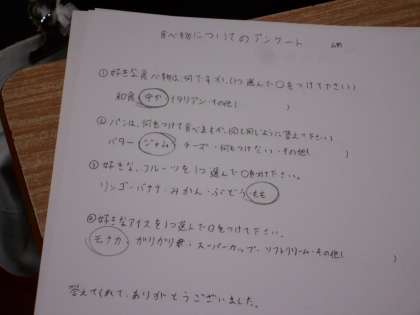 食べ物についてのアンケート
①好きな食べ物は、何ですか。(1つ選んで○をつけて下さい)
和食 中か イタリアン・その他( )
②パンは、何をつけて食べますか。(①と同じように答えて下さい)
バター ジャム チーズ・何もつけない・その他( )
③好きな、フルーツを1つ選んで○を付けて下さい。
リンゴ・バナナ・みかん・ぶどう もも
④好きなアイスを1つ選んで○をつけて下さい。
モナカ・ガリガリ君・スーパーカップ・ソフトクリーム・その他( )
答えてくれて、ありがとうございました。